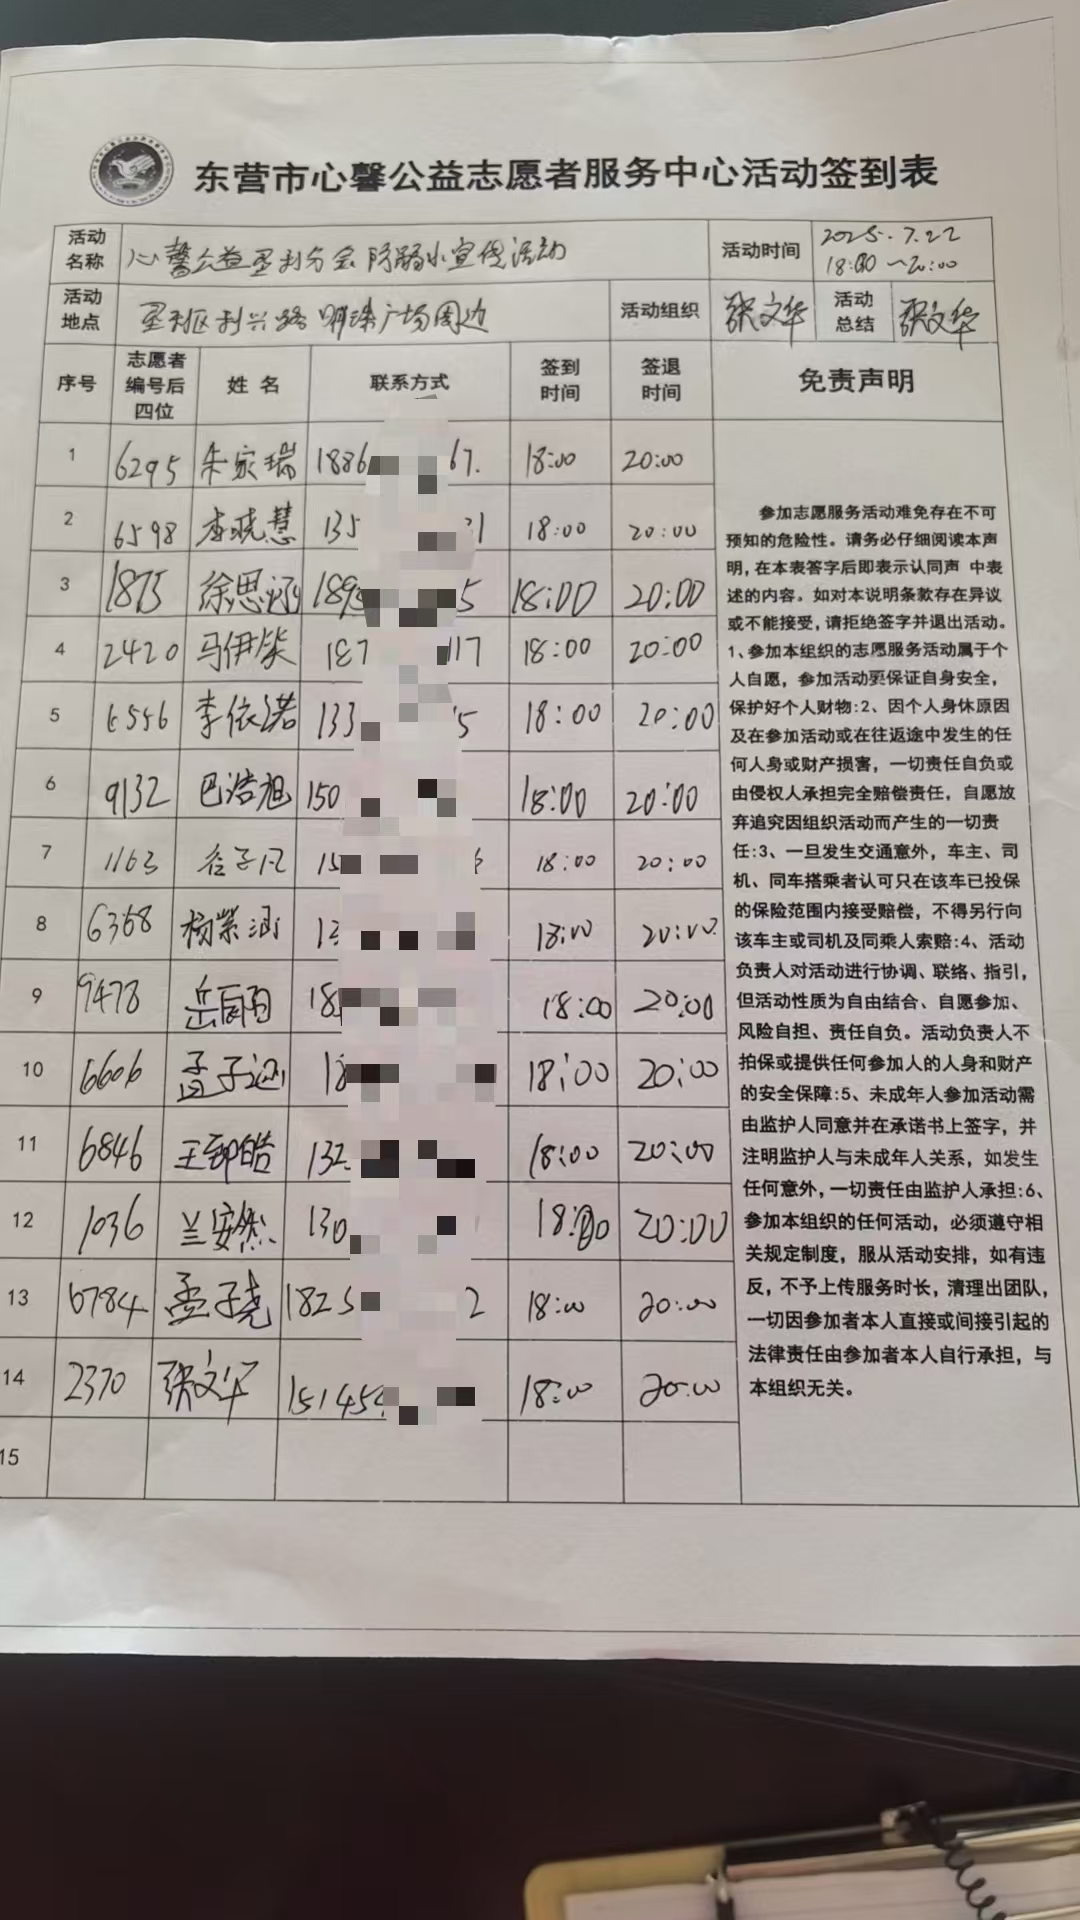 东营市心馨公益志愿者服务中心活动签到表
活动名称 心馨公益垦利分会防溺水宣传活动 活动时间 2025.7.22 18:00~20:00
活动地点 垦利区利兴路明珠广场周边 活动组织 张文华 活动总结 张文华
序号 志愿者编号后四位 姓名 联系方式 签到时间 签退时间 免责声明
1 6295 朱家瑞 1886 67. 18:00 20:00
2 6598 李晓慧 135 31 18:00 20:00
3 1875 徐思涵 1895 5 18:00 20:00
4 2420 马伊 187 117 18:00 20:00
5 6556 李依诺 133 5 18:00 20:00
6 9132 巴浩旭 150 18:00 20:00
7 1163 谷子凡 15 18:00 20:00
8 6368 杨紫涵 13 18:00 20:00
9 9478 岳 18 18:00 20:00
10 6606 孟子涵 18 18:00 20:00
11 6846 王 皓 132 18:00 20:00
12 1036 兰安然 130 18:00 20:00
13 6784 孟子尧 1825 2 18:00 20:00
14 2370 张文华 15145 18:00 20:00
15
参加志愿服务活动难免存在不可
预知的危险性。请务必仔细阅读本声
明,在本表答字后即表示认同声 中表
述的内容。如对本说明条款存在异议
或不能接受,请拒绝签字并退出活动。
1、参加本组织的志愿服务活动属于个
人自愿,参加活动要保证自身安全,
保护好个人财物:2、因个人身休原因
及在参加活动或在往返途中发生的任
何人身或财产损害,一切责任自负或
由侵权人承担完全赔偿责任,自愿放
弃追究因组织活动而产生的一切责
任:3、一旦发生交通意外,车主、司
机、同车搭乘者认可只在该车已投保
的保险范围内接受赔偿,不得另行向
该车主或司机及同乘人索赔:4、活动
负责人对活动进行协调、联络、指引,
但活动性质为自由结合、自愿参加、
风险自担、责任自负。活动负责人不
拍保或提供任何参加人的人身和财产
的安全保障:5、未成年人参加活动需
由监护人同意并在承诺书上签字,并
注明监护人与未成年人关系,如发生
任何意外,一切责任由监护人承担:6、
参加本组织的任何活动,必须遵守相
关规定制度,服从活动安排,如有违
反,不予上传服务时长,清理出团队,
一切因参加者本人直接或间接引起的
法律责任由参加者本人自行承担,与
本组织无关。